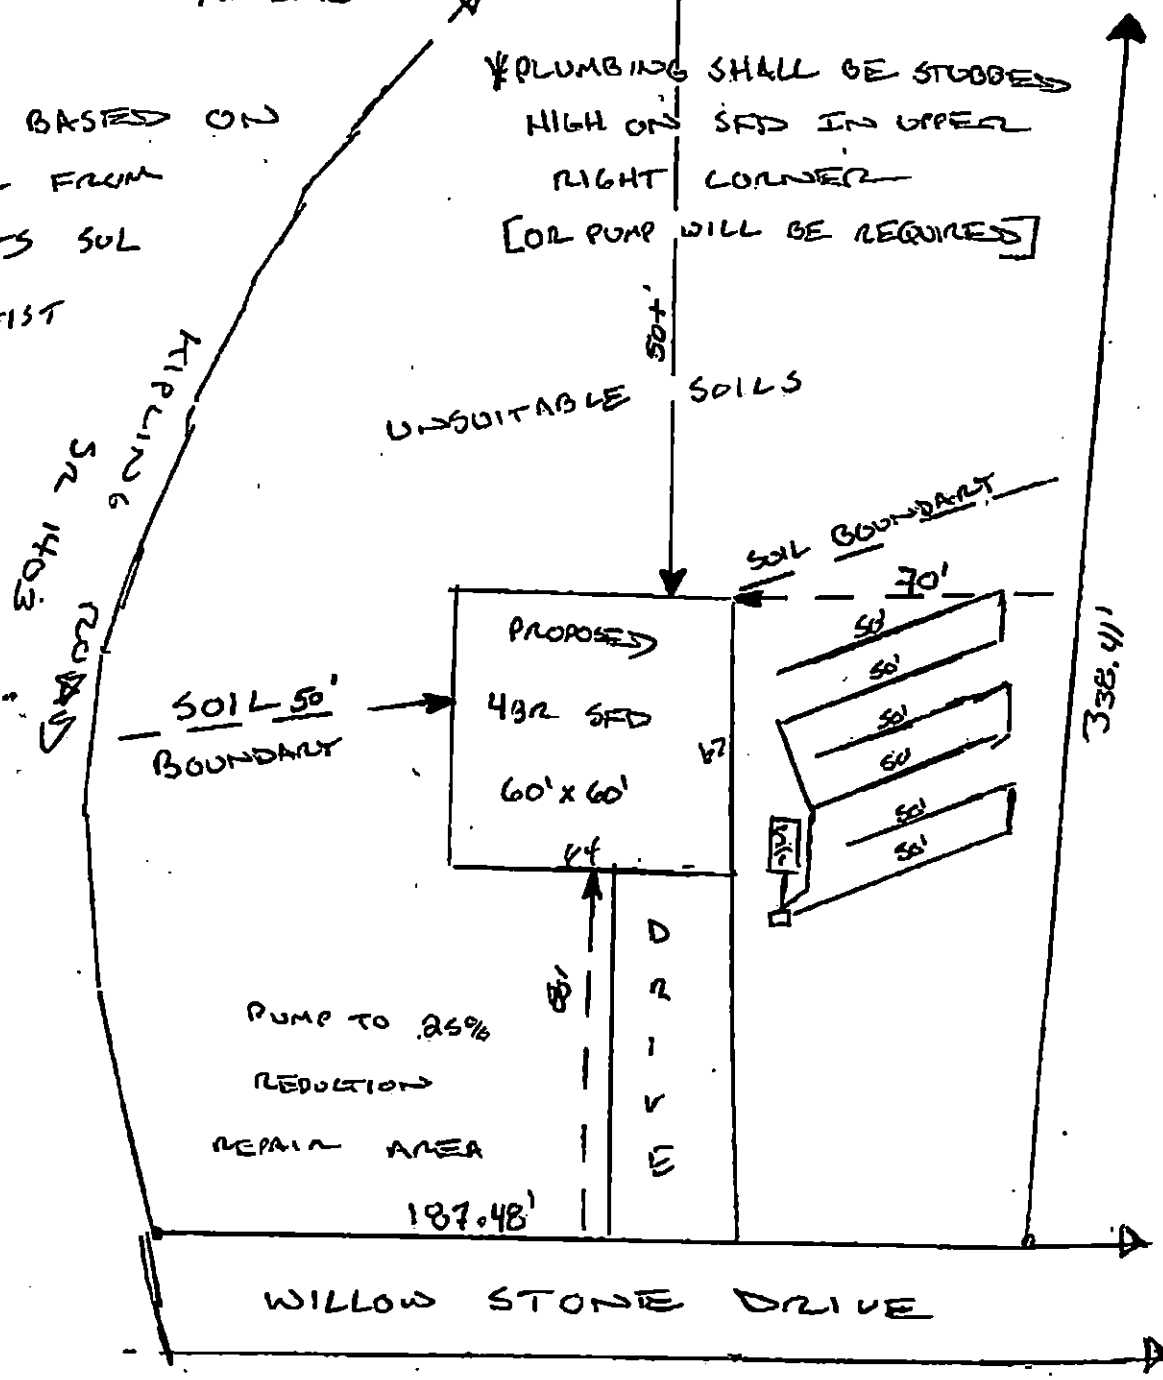 BASED ON
FROM
SOIL
*PLUMBING SHALL BE STUBBED
HIGH ON SFD IN UPPER
RIGHT CORNER
[OR PUMP WILL BE REQUIRED]
50+'
UNSUITABLE SOILS
KIPLING ROAD
SR 1403
SOIL BOUNDARY
70'
338.41'
PROPOSED
4BR SFD
60' x 60'
SOIL 50'
BOUNDARY
50'
50'
50'
50
50'
50'
DRIVE
PUMP TO 25%
REDUCTION
REPAIR AREA
187.48'
WILLOW STONE DRIVE